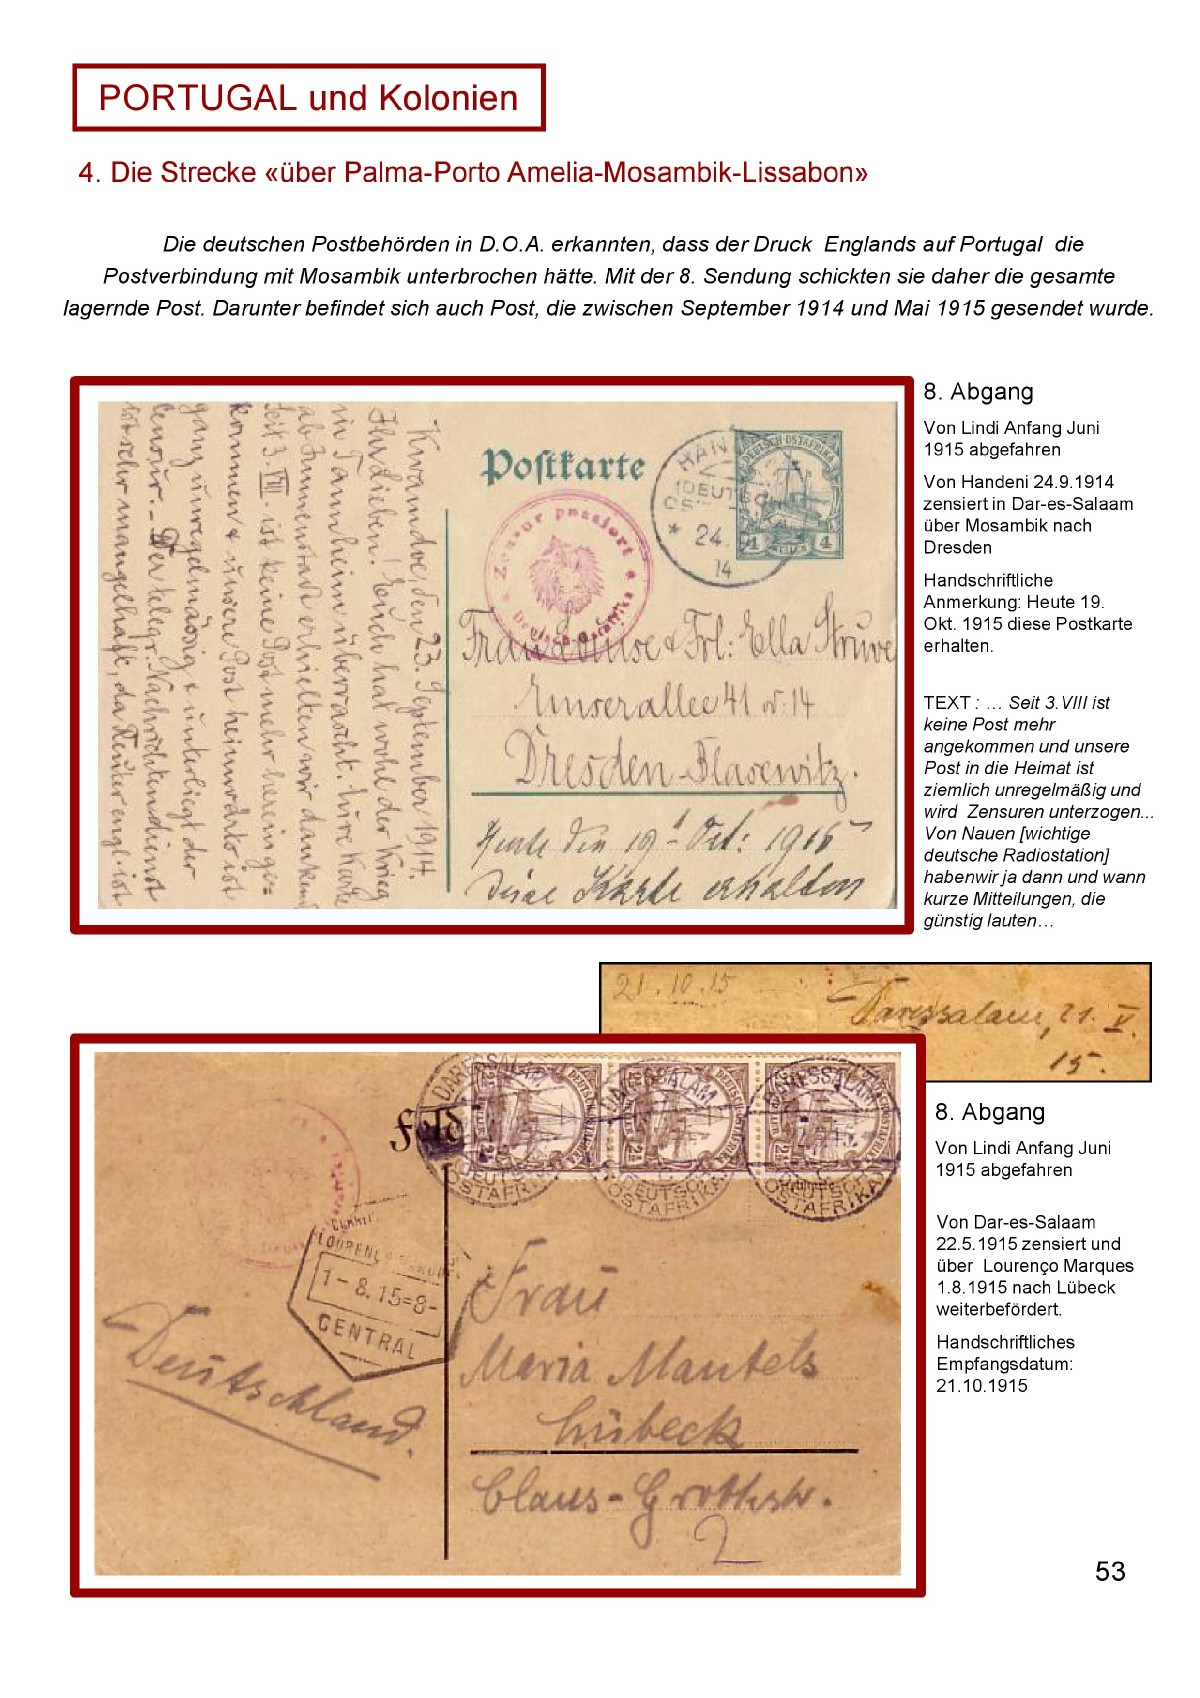 PORTUGAL und Kolonien
4. Die Strecke «über Palma-Porto Amelia-Mosambik-Lissabon»
Die deutschen Postbehörden in D.O.A. erkannten, dass der Druck Englands auf Portugal die
Postverbindung mit Mosambik unterbrochen hätte. Mit der 8. Sendung schickten sie daher die gesamte
lagernde Post. Darunter befindet sich auch Post, die zwischen September 1914 und Mai 1915 gesendet wurde.
Kwamdoe, den 23. September 1914.
Ihr Lieben! Euch hat wohl der Krieg
in Tannheim überrascht. Eure Karte
ab Immenstadt erhielten wir dankend
Seit 3. VIII. ist keine Post mehr herein ge=
kommen & unsere Post heimwärts ist
ganz unregelmässig & unterliegt der
Censur. - Der telegr. Nachrichtendienst
ist sehr mangelhaft, da Reuter engl. ist
Postkarte
DEUTSCH-OSTAFRIKA
4 HELLER 4
HAN
(DEUTSCH
OST
* 24. 9.
14
Zensur passiert
Deutsch-Ostafrika
Frau Louise & Frl: Ella Struve
Emserallee 41 od. 14
Dresden-Blasewitz.
Heute den 19t Oct: 1915
Deine Karte erhalten
8. Abgang
Von Lindi Anfang Juni
1915 abgefahren
Von Handeni 24.9.1914
zensiert in Dar-es-Salaam
über Mosambik nach
Dresden
Handschriftliche
Anmerkung: Heute 19.
Okt. 1915 diese Postkarte
erhalten.
TEXT : … Seit 3.VIII ist
keine Post mehr
angekommen und unsere
Post in die Heimat ist
ziemlich unregelmäßig und
wird Zensuren unterzogen...
Von Nauen [wichtige
deutsche Radiostation]
habenwir ja dann und wann
kurze Mitteilungen, die
günstig lauten…
21.10.15
Daressalam, 21. V.
15.
Feld
DARESSALAM
DEUTSCH
OSTAFRIKA
DARESSALAM
DEUTSCH
OSTAFRIKA
DARESSALAM
DEUTSCH
OSTAFRIKA
LOURENÇO MARQUES
1-8.15=8-
CENTRAL
Deutschland.
Frau
Maria Mantels
Lübeck
Claus-Grothstr.
2
8. Abgang
Von Lindi Anfang Juni
1915 abgefahren
Von Dar-es-Salaam
22.5.1915 zensiert und
über Lourenço Marques
1.8.1915 nach Lübeck
weiterbefördert.
Handschriftliches
Empfangsdatum:
21.10.1915
53